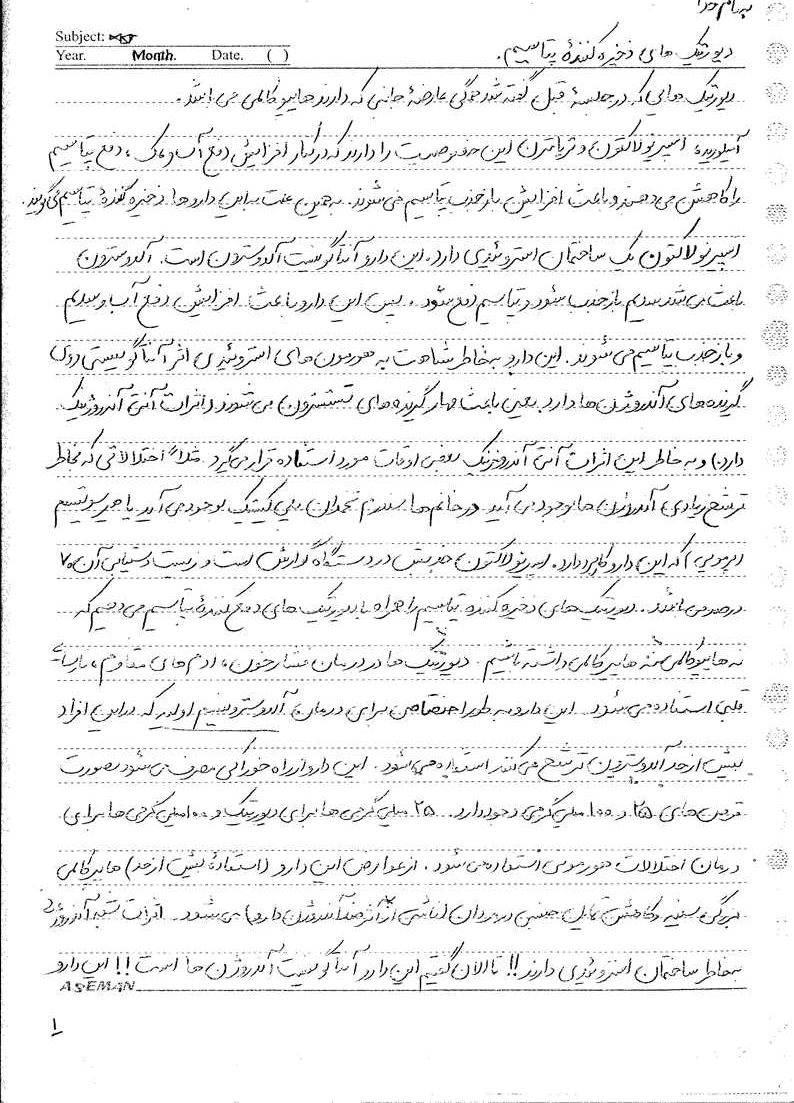 به نام خدا
Subject:
Year. Month. Date. ( )
دیورتیک های ذخیره کنندهٔ پتاسیم.
دیورتیک هایی که در جلسهٔ قبل گفته شد همگی عارضهٔ جانبی که دارند هایپوکالمی می باشد.
آمیلورید، اسپیرونولاکتون و تریامترن این خصوصیت را دارند که در کنار افزایش دفع آب و نمک، دفع پتاسیم
را کاهش می دهند و باعث افزایش بازجذب پتاسیم می شوند. به همین علت به این داروها ذخیره کنندهٔ پتاسیم می گویند.
اسپیرونولاکتون یک ساختمان استروئیدی دارد. این دارو آنتاگونیست آلدوسترون است. آلدوسترون
باعث می شد سدیم بازجذب بشود و پتاسیم دفع بشود. پس این دارو باعث افزایش دفع آب و سدیم
و بازجذب پتاسیم می شوند. این دارو بخاطر شباهت به هورمون های استروئیدی اثر آنتاگونیستی روی
گیرنده های آندروژن ها دارد یعنی باعث مهار گیرنده های تستسترون می شوند (اثرات آنتی آندروژنیک
دارن) و به خاطر این اثرات آنتی آندروژنیک بعضی اوقات مورد استفاده قرار می گیرد. مثلاً اختلالاتی که بخاطر
ترشح زیادی آندروژن ها بوجود می آید در خانم ها سندرم تخمدان پلی کیستیک بوجود می آید یا هیرسوتیسم
(پرمویی) که این دارو کاربرد دارد. اسپرنولاکتون جذبش در دستگاه گوارش است و زیست دستیابی آن ۷۰
درصد می باشد. دیورتیک های ذخیره کننده پتاسیم را همراه با دیورتیک های دفع کنندهٔ پتاسیم می دهیم که
نه هایپوکالمی نه هایپرکالمی داشته باشیم. دیورتیک ها در درمان فشار خون، ادم های مقاوم، نارسایی
قلبی استفاده می شود. این دارو به طور اختصاصی برای درمان آلدوسترونیسم اولیه که در این افراد
بیش از حد آلدوسترون ترشح می کنند استفاده می شود. این دارو از راه خوراکی مصرف می شود بصورت
قرص های ۲۵ و ۱۰۰ میلی گرمی وجود دارد. ۲۵ میلی گرمی ها برای دیورتیک و ۱۰۰ میلی گرمی ها برای
درمان اختلالات هورمونی استفاده می شود. از عوارض این دارو (استفادهٔ بیش از حد) هایپرکالمی
بزرگی سینه و کاهش تمایل جنسی در مردان (ناشی از اثر ضد آندروژن دارو) می شود. اثرات شبه آندروژنی
بخاطر ساختمان استروئیدی دارند!! تا الان گفتیم این دارو آنتاگونیست آندروژن ها است!! این دارو
ASEMAN
۱